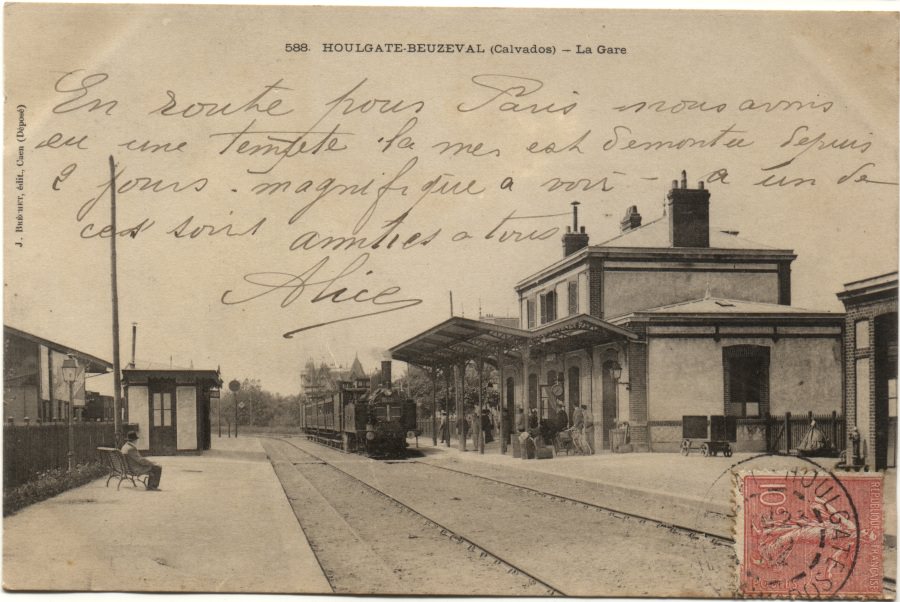 588. HOULGATE-BEUZEVAL (Calvados) – La Gare
J. BRÉCHET, édit., Caen (Déposé)
En route pour Paris nous avons
eu une tempête la mer est démontée depuis
2 jours - magnifique a voir - a un de
ces soirs amitiés a tous
Alice
10c
RÉPUBLIQUE FRANÇAISE
HOULGATE